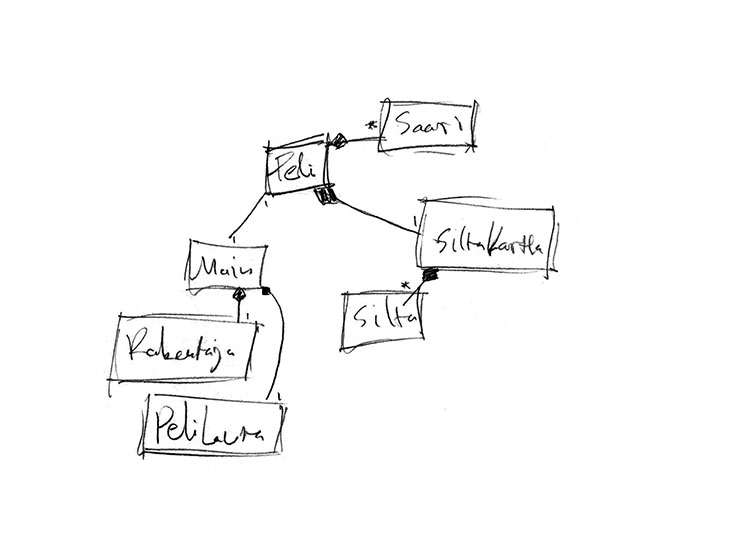 * Saari
Peli
1
1
1
SiltaKartta
Main
*
Silta
1
Rakentaja
1
PeliLauta